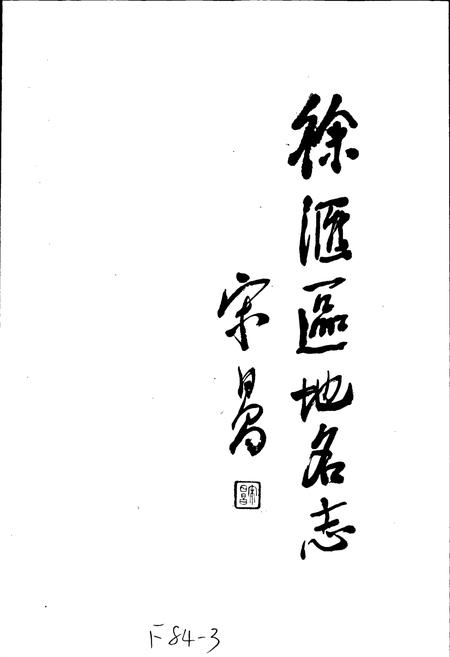 徐滙區地名志
宋日昌
宋日昌
F84-3